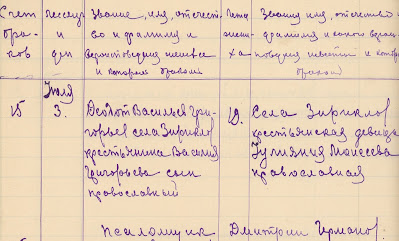 Счет
бра-
ков
месяцъ
и
дни
Звание, имя, отчест-
во и фамилия и
вероисповедания жениха
и которым браком
Лета
ха
Звание имя, отчество и
фамилия и какого веро-
поведания невесты и которым
браком
Июля
15
3.
Васильев Гри-
горьев села Зириклов
крестьянина Василия
Григорьева сын
православный
19.
Села Зириклов
крестьянская девица
Гулияния Моисеева
православная
псаломщик
Дмитрий Германов